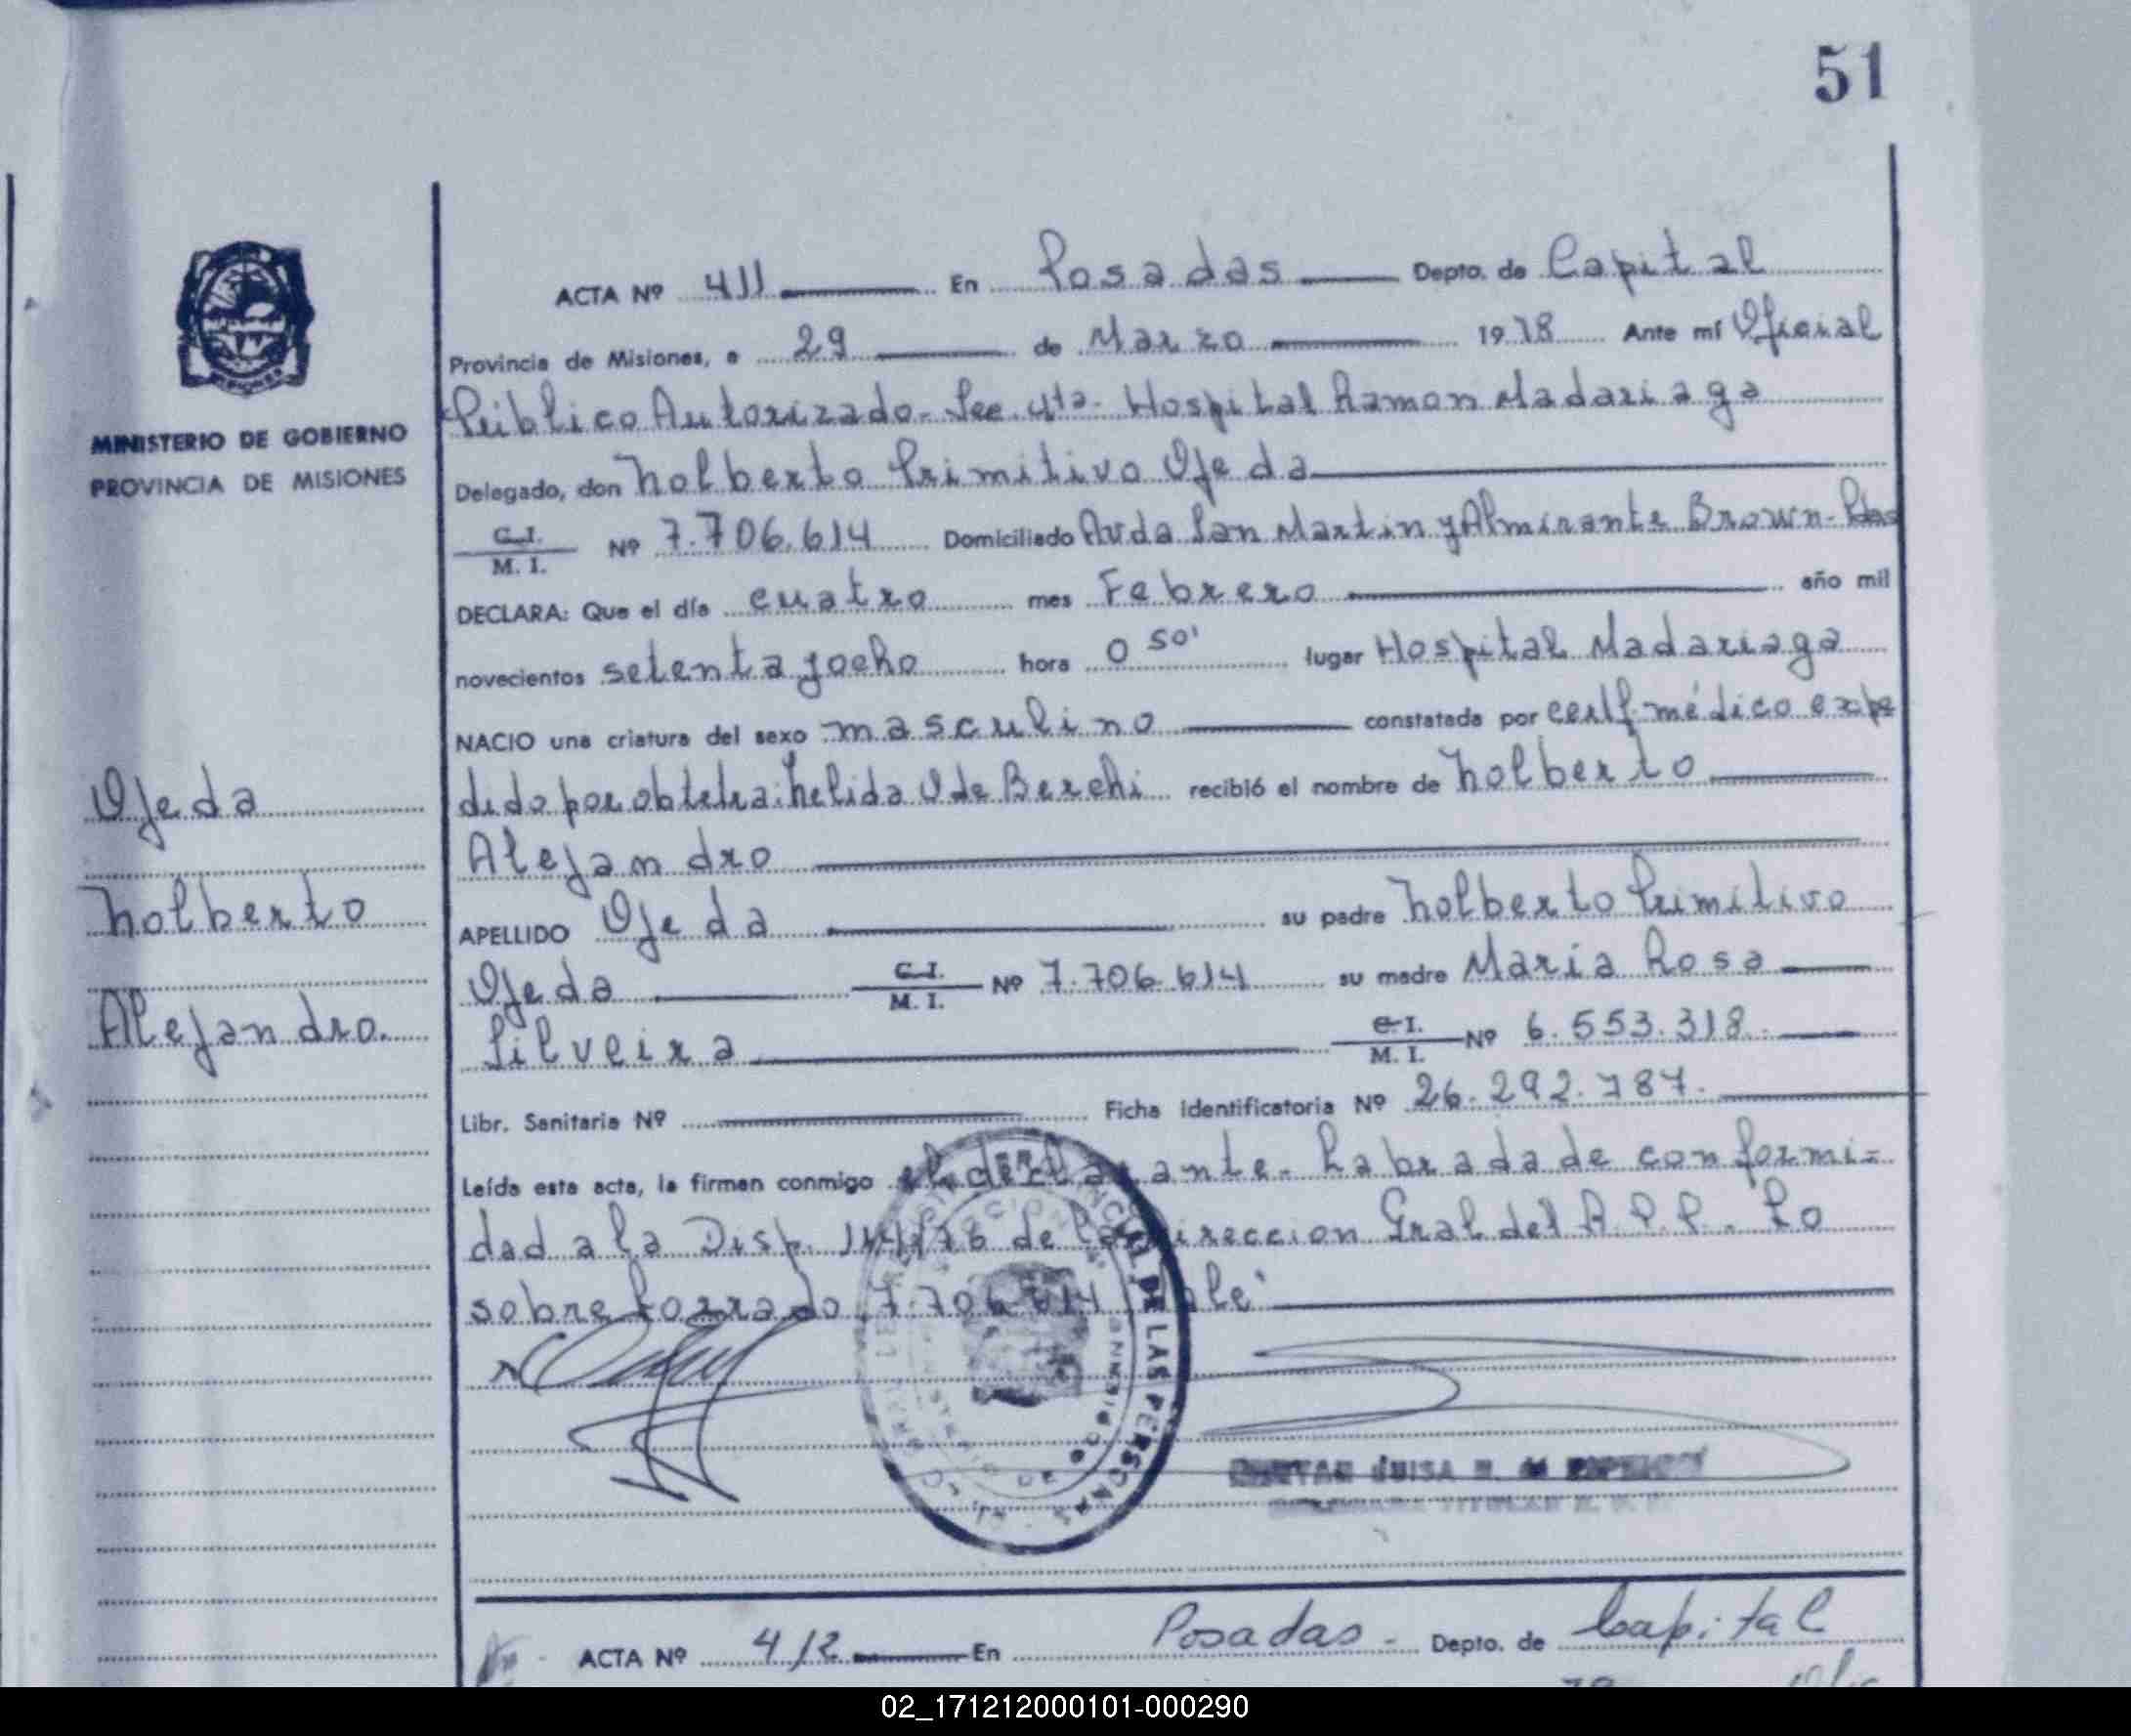 51
ACTA Nº 411 En Posadas Depto. de Capital
Provincia de Misiones, a 29 de Marzo 1978 Ante mí Oficial
Público Autorizado- Sec. 4ta- Hospital Ramon Madariaga
MINISTERIO DE GOBIERNO
PROVINCIA DE MISIONES
Delegado, don Nolberto Primitivo Ojeda
C.I. M. I. Nº 7.706.614 Domiciliado Avda San Martin y Almirante Brown- Pdas
DECLARA: Que el día cuatro mes Febrero año mil
novecientos setenta y ocho hora 0 50' lugar Hospital Madariaga
NACIO una criatura del sexo masculino constatada por certf. médico expe
dido por obtetra: Nelida O de Berchi recibió el nombre de Nolberto
Alejandro
Ojeda
Nolberto
Alejandro.
APELLIDO Ojeda su padre Nolberto Primitivo
Ojeda C.I. M. I. Nº 7.706.614 su madre Maria Rosa
Silveira C.I. M. I. Nº 6.553.318.
Libr. Sanitaria Nº Ficha Identificatoria Nº 26.292.787.
Leída esta acta, la firman conmigo el declarante- Labrada de conformi=
dad a la Disp. /76 de la Direccion Gral del R.P.P. Lo
sobreborrado 7.706.614 Vale
DE LAS PERSONAS
LUISA
ACTA Nº 412 En Posadas - Depto. de Capital
02_171212000101-000290